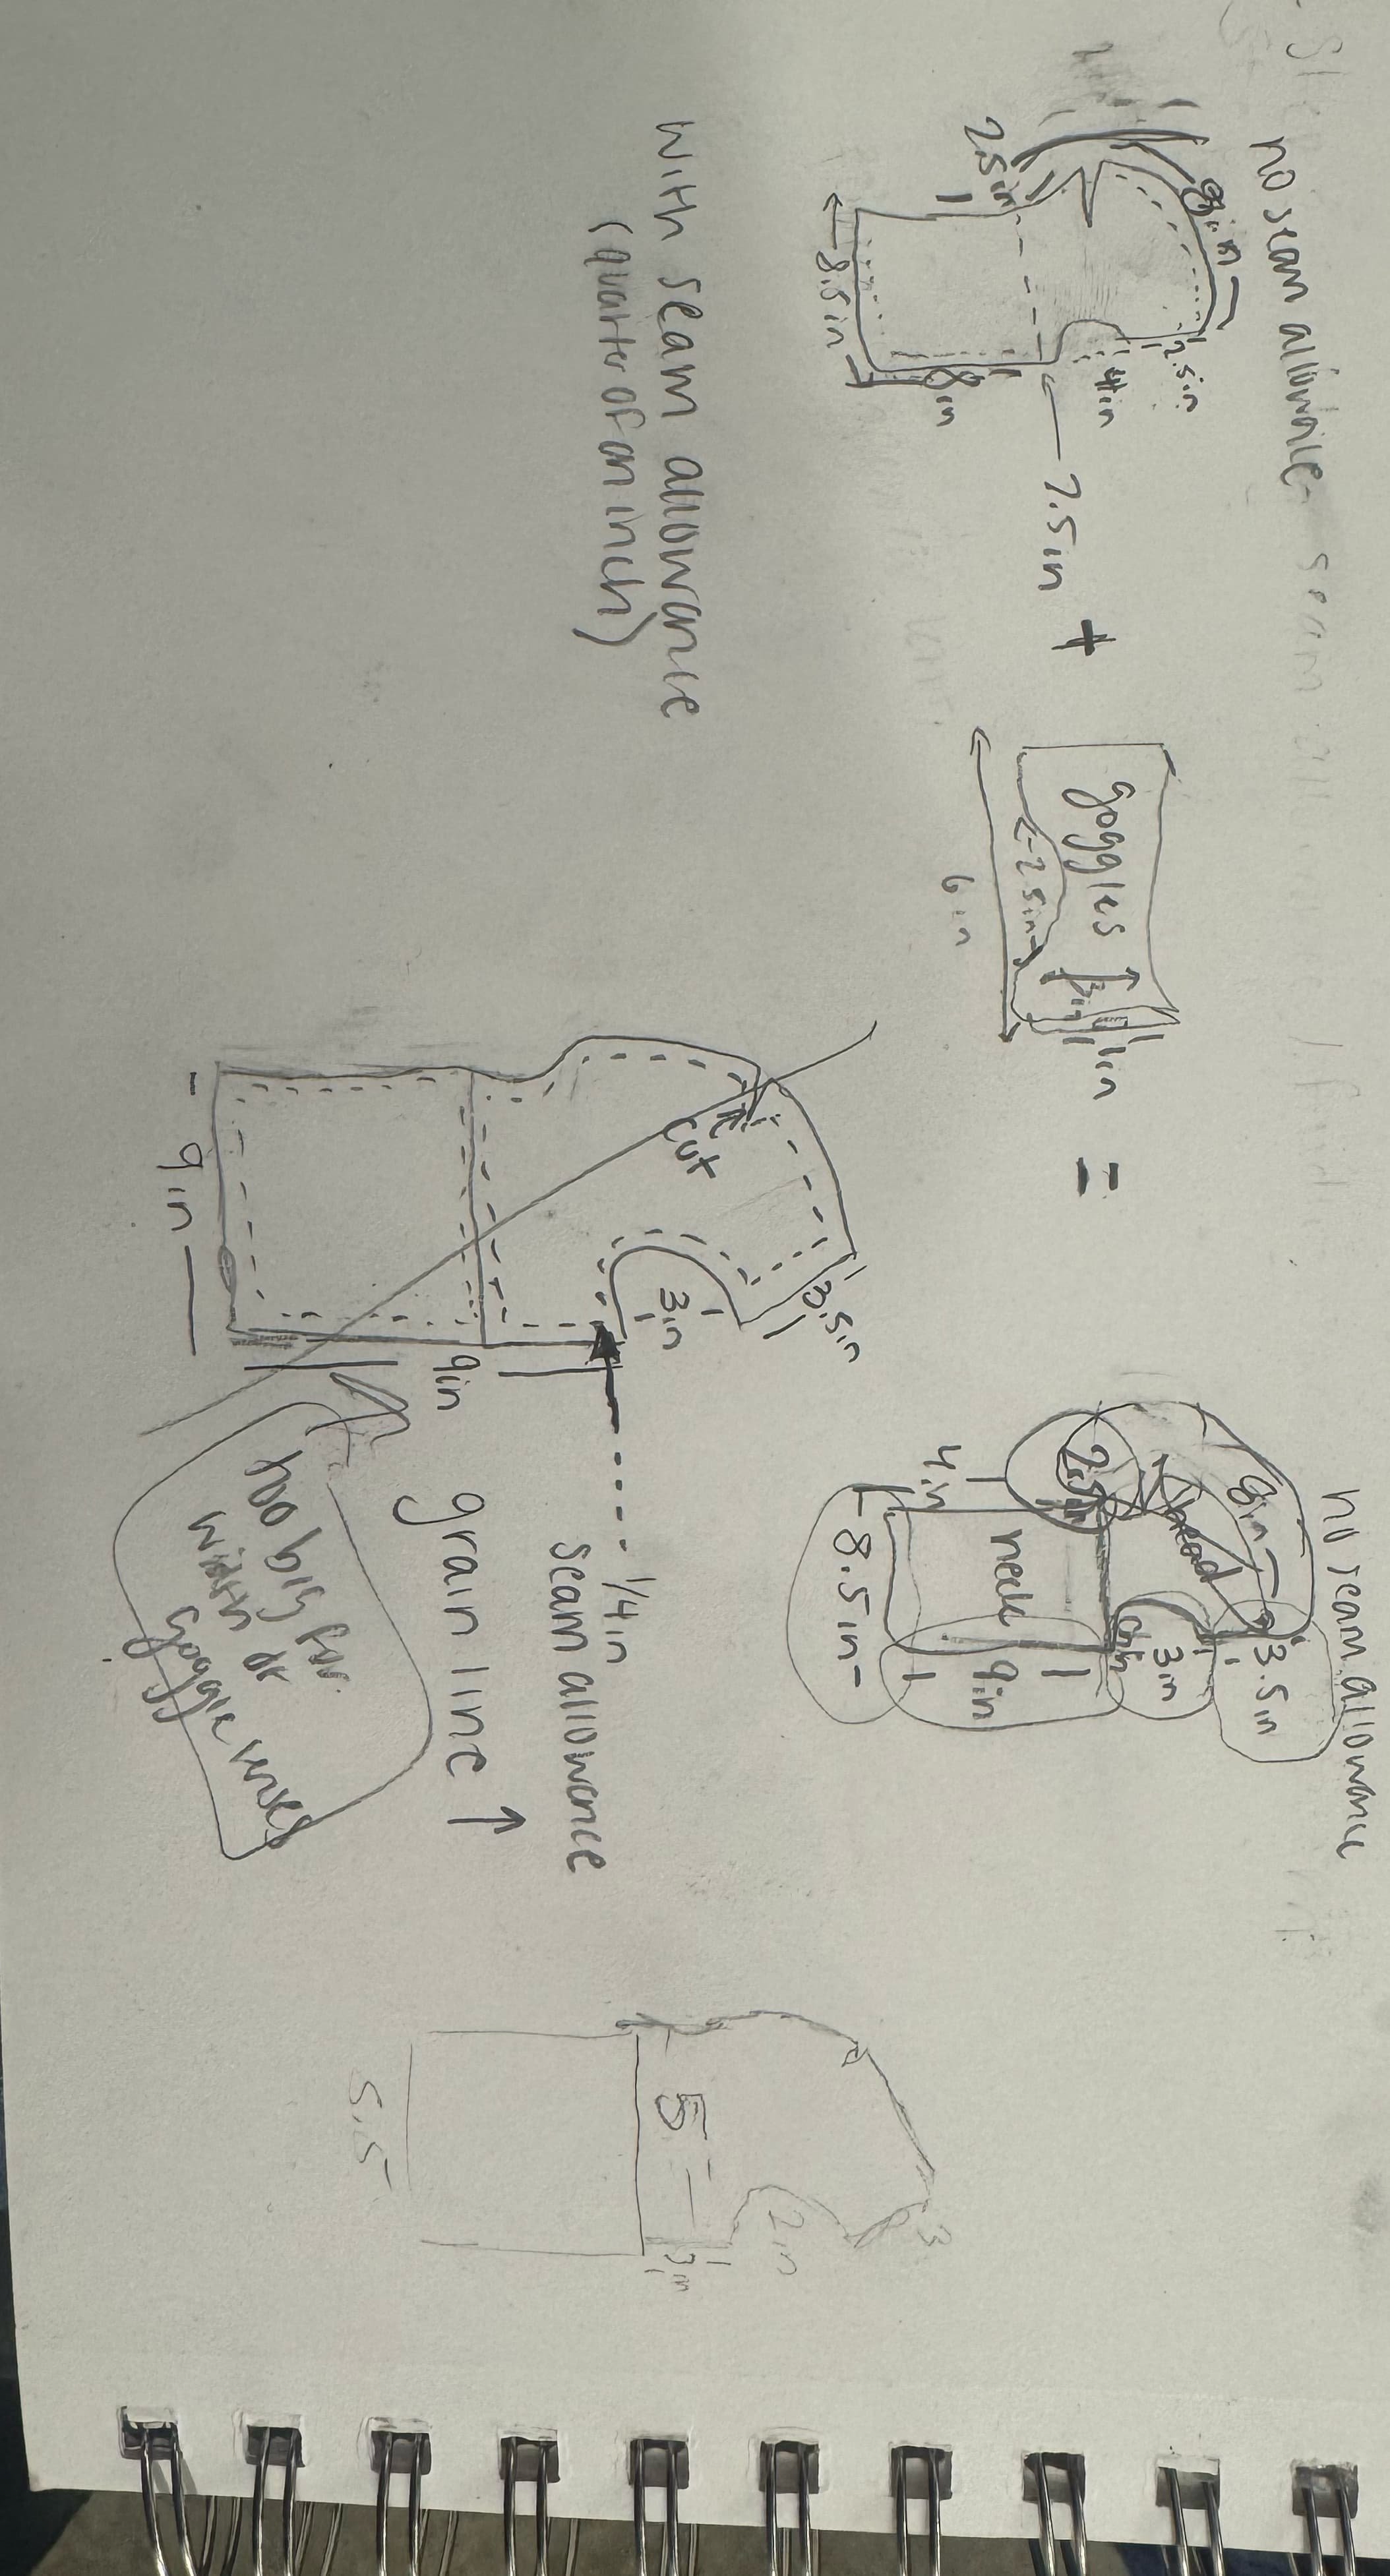 no seam allowance
8in
2.5in
2.5in
4in
8in
8.5in
7.5in
+
goggles
2.5in
1in
6in
=
no seam allowance
8in
head
3.5in
2.5in
3in
chin
4in
neck
9in
8.5in
with seam allowance
(quarter of an inch)
cut
3.5in
3in
9in
9in
1/4in
seam allowence
grain line ↑
too big for
width of
goggle
3
2in
5
3in
5.5